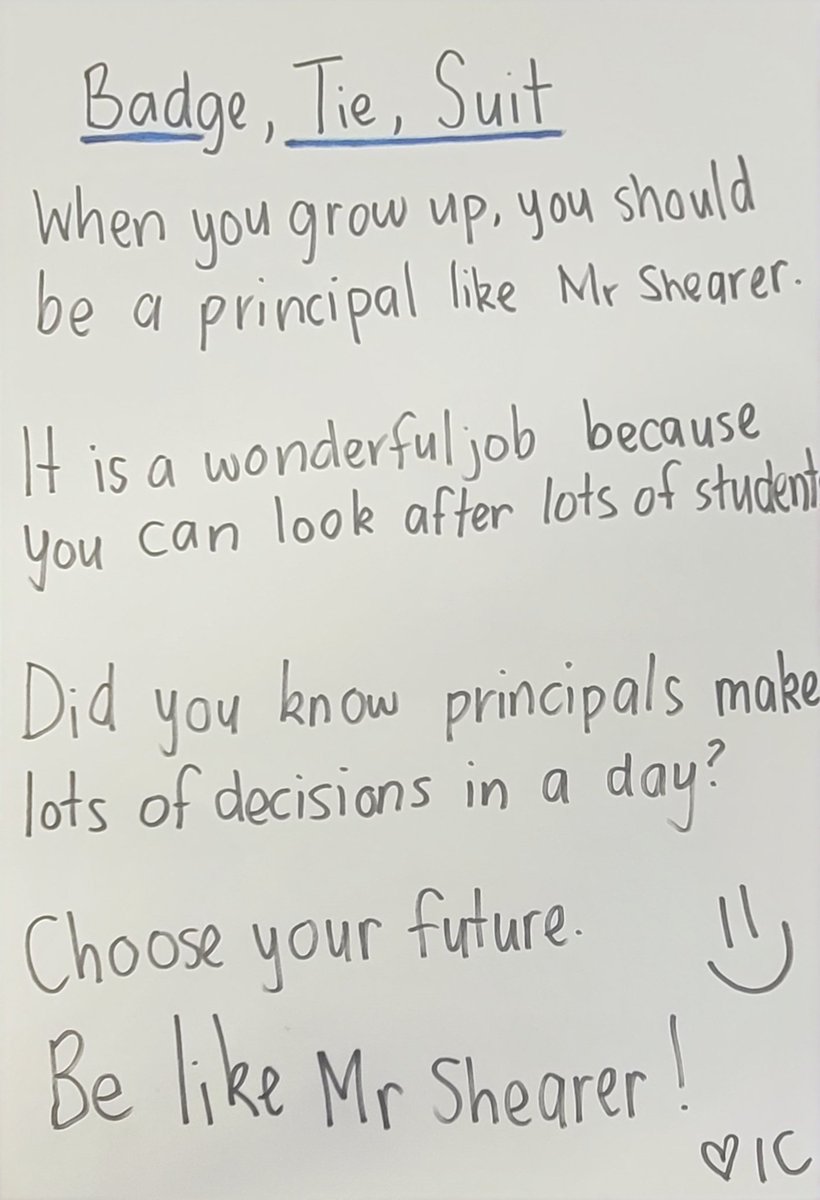 Badge, Tie, Suit
When you grow up, you should
be a principal like Mr Shearer.
It is a wonderful job because
you can look after lots of student
Did you know principals make
lots of decisions in a day?
Choose your future.
Be like Mr Shearer!
♡ 1C